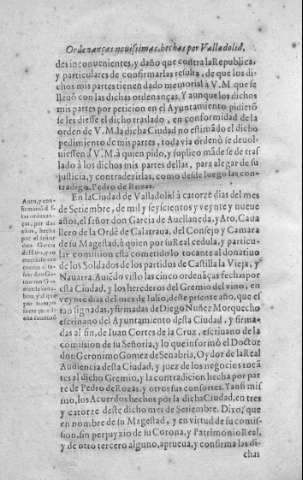 Ordenanças nouissimas, hechas por Valladolid.
des inconuenientes, y daño que contra la Republica,
y particulares de confirmarlas resulta, de que los di-
chos mis partes tienen dado memorial à V.M. que se
lleuò con las dichas ordenanças. Y aunque los dichos
mis partes por peticion en el Ayuntamiento pidierõ
se les diesse el dicho traslado, en conformidad de la
orden de V.M. la dicha Ciudad no estimãdo el dicho
pedimiento de mis partes, todavia ordenò se deuol-
uiessen à V.M. à quien pido, y suplico mãde se de tras
lado à los dichos mis partes dellas, para alegar de su
justicia, y contradezirlas, como desde luego las con-
tradigo. Pedro de Rozas.
En la Ciudad de Valladolid à catorze dias del mes
de Setiembre, de mil y seyscientos y veynte y nueue
años, el señor don Garcia de Auellaneda, y Aro, Caua
llero de la Ordẽ de Calatraua, del Consejo y Camara
de su Magestad, à quien por su Real cedula, y particu-
lar comission esta cometido lo tocante al donatiuo
de los Soldados de los partidos de Castilla la Vieja, y
Nauarra. Auiẽdo visto las cinco ordenãças fechas por
esta Ciudad, y los herederos del Gremio del vino, en
veynte dias del mes de Iulio, deste presente año, que es
tan signadas, y firmadas de Diego Nuñez Morquecho
escriuano del Ayuntamiento desta Ciudad, y firma-
das al fin, de Iuan Cortes de la Cruz, escriuano de la
comission de su Señoria, y lo que informò el Doctor
don Geronimo Gomez de Senabria, Oydor de la Real
Audiencia desta Ciudad, y juez de los negocios tocã
tes al dicho Gremio, y la contradicion hecha por par
te de Pedro de Rozas, y otros sus consortes. Y ansi mis
mo, los Acuerdos hechos por la dicha Ciudad, en tres
y catorze deste dicho mes de Setiembre. Dixo, que
en nombre de su Magestad, y en virtud de su comis-
sion, sin perjuyzio de su Corona, y Patrimonio Real,
y de otro tercero alguno, aprueua, y confirma las di-
chas